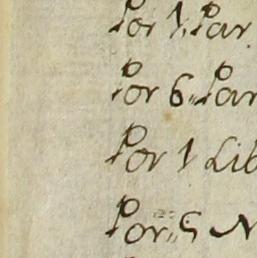 Por 1, Par
Por 6, Par
Por 1 Lib
Por, 5 N